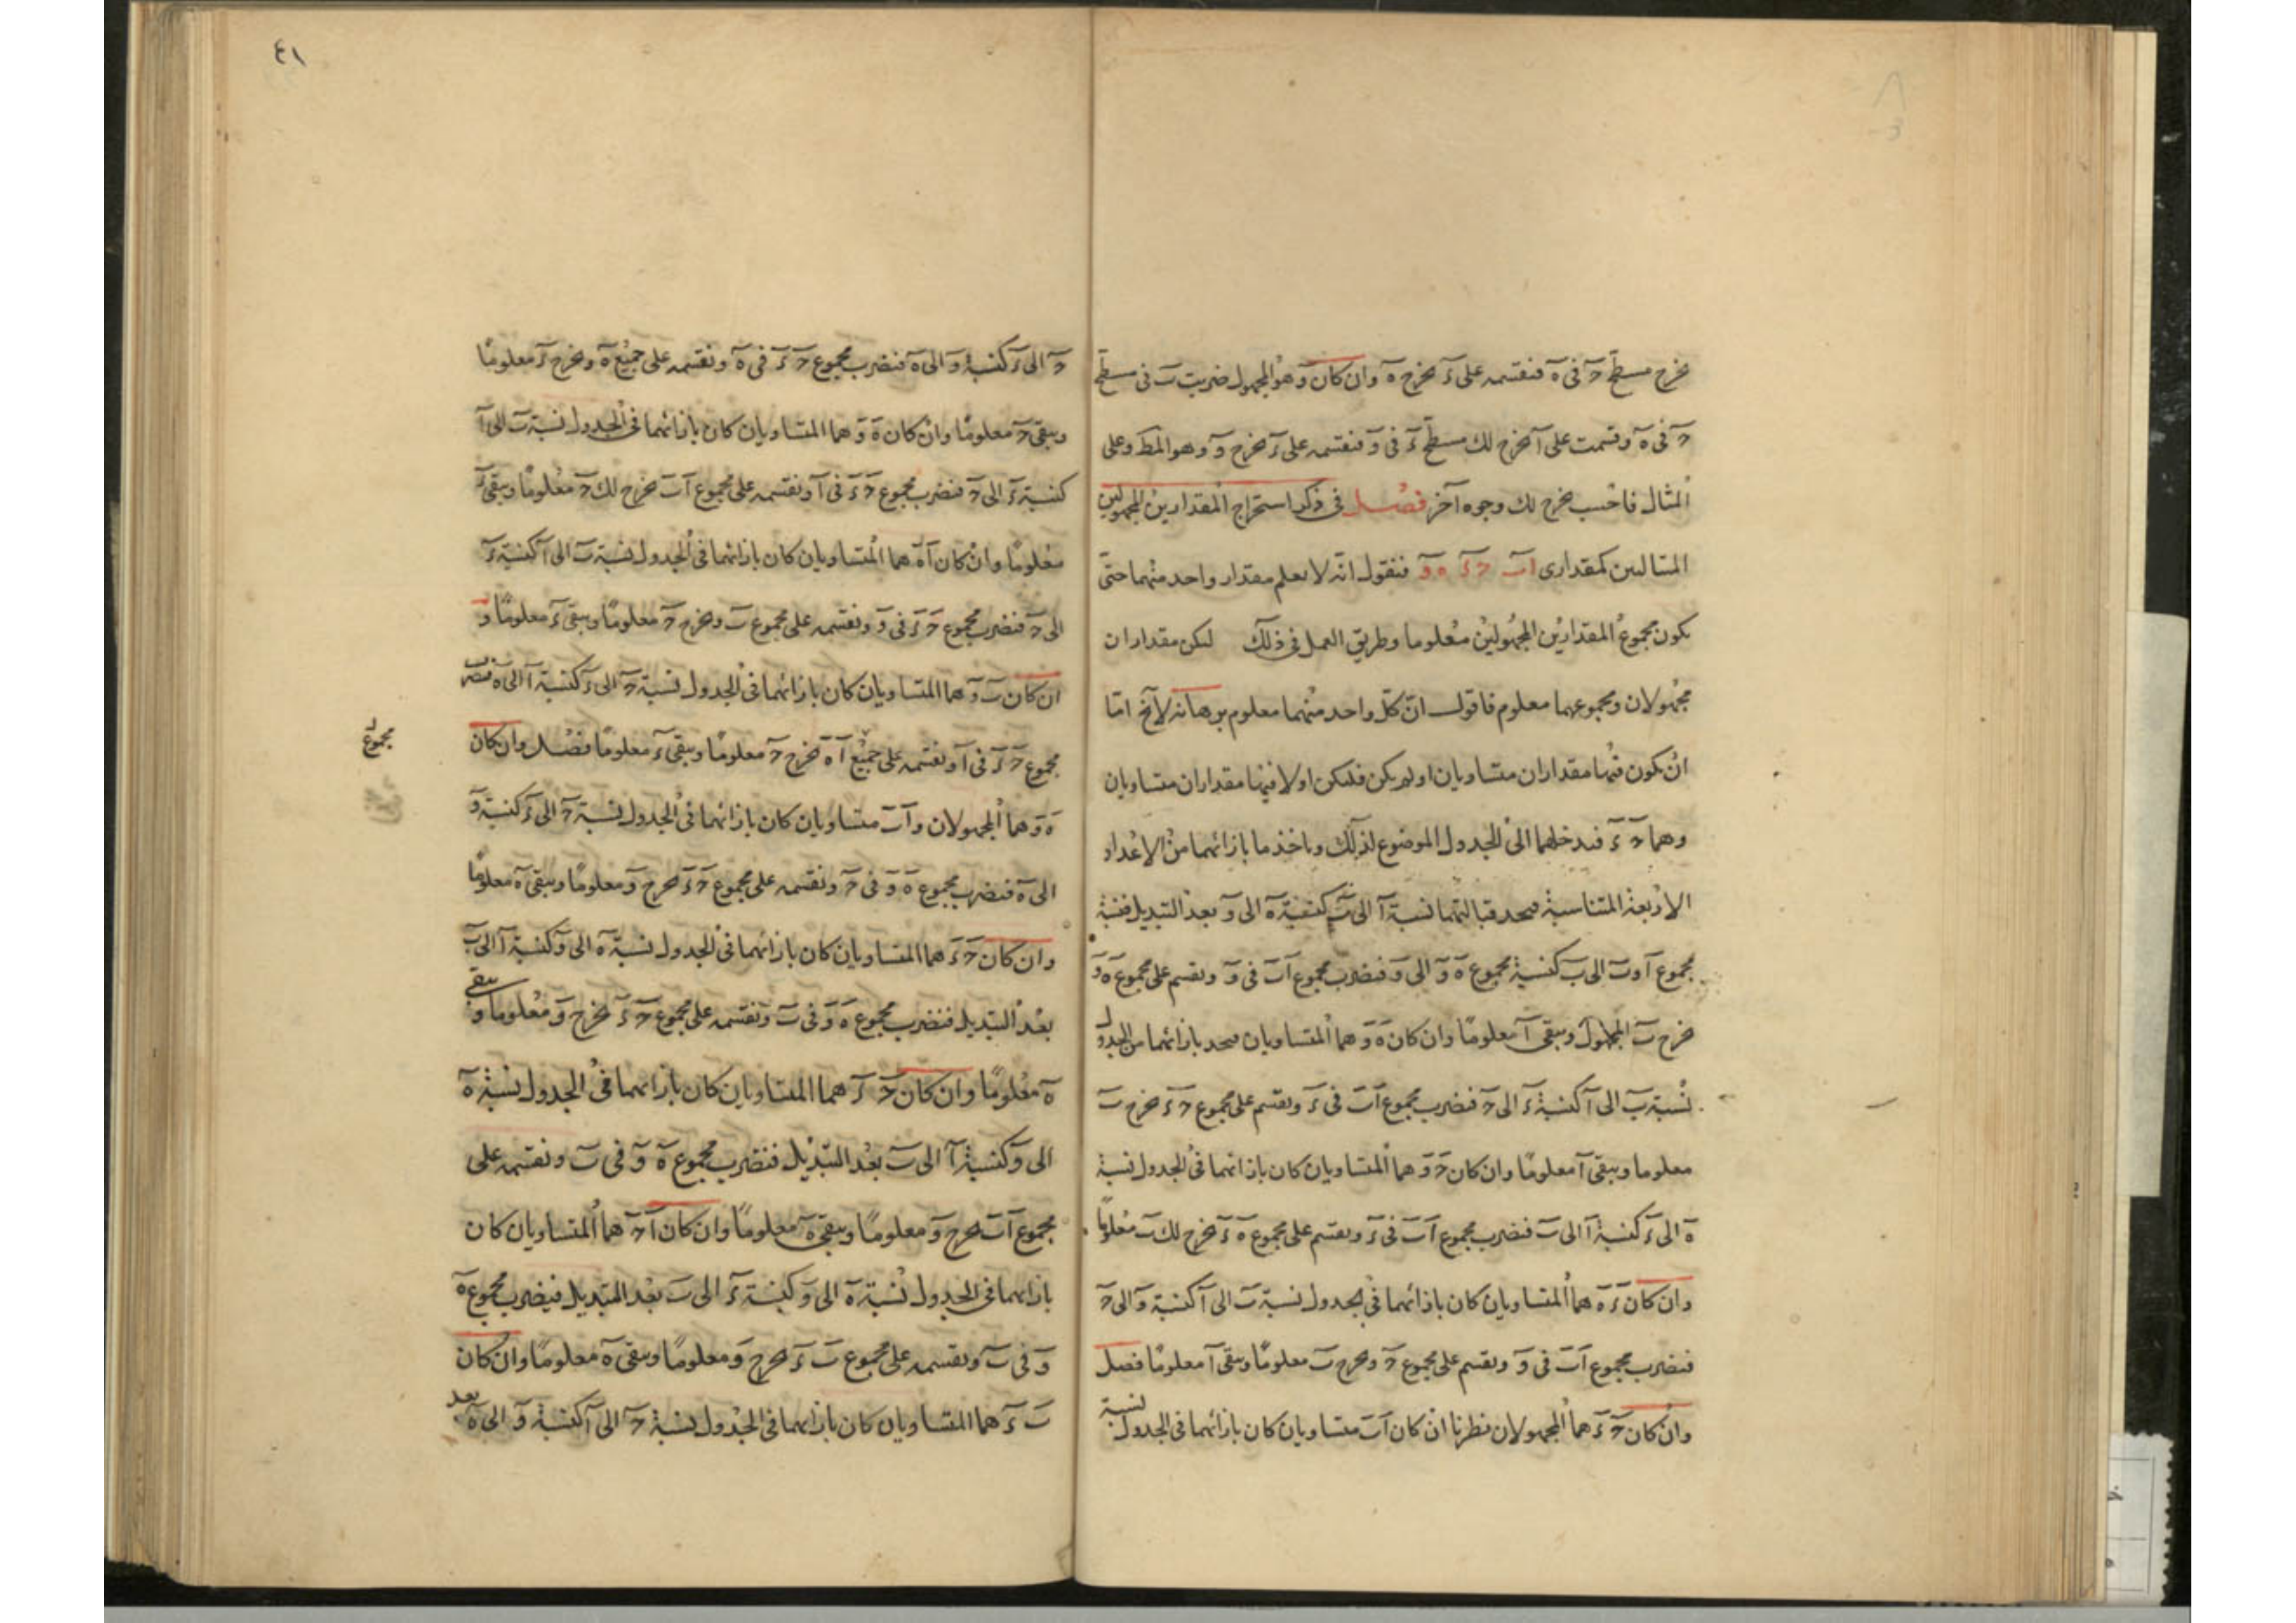 يخرج مسطح حَ فى هَ فنقسمه على ءَ يخرج هَ وان كان وَ هو المجهول ضربت بَ فى مسطح
حَ فى هَ وقسمت على آ يخرج لك مسطح ءَ فى وَ فنقسمه على ءَ يخرج وَ وهو المط وعلى
المثال فاحسب يخرج لك وجوه آخر فصل فى ذكر استخراج المقدارين المجهولين
كمقدارى اَبَ حَ ءَ هَ وَ فنقول انه لا يعلم مقدار واحد منهما حتى
يكون مجموع المقدارين المجهولين معلوما وطريق العمل فى ذلك ليكن مقداران
مجهولان ومجموعهما معلوم فاقول ان كل واحد منهما معلوم برهانه لآ يخ امّا
ان يكون فيها مقداران متساويان او لم يكن فليكن اولا فيها مقداران متساويان
وهما حَ ءَ فندخلهما الى الجدول الموضوع لذلك وناخذ ما بازائهما من الاعداد
الاربعة المتناسبة فيحد قبالتهما نسبة آ الى بَ كنسبة هَ الى وَ بعد التبديل فنسبة
مجموع آ وبَ الى بَ كنسبة مجموع هَ وَ الى وَ فنضرب مجموع اَبَ فى وَ ونقسم على مجموع هَ وَ
خرج بَ المجهول ويبقى آ معلومًا وان كان هَ وَ هما المتساويان فيحد بازائهما من الجدول
نسبة بَ الى آ كنسبة ءَ الى حَ فنضرب مجموع اَبَ فى ءَ ونقسم على مجموع حَ ءَ يخرج بَ
معلوما ويبقى آ معلومًا وان كان حَ وَ هما المتساويان كان بازائهما فى الجدول نسبة
هَ الى ءَ كنسبة آ الى بَ فنضرب مجموع اَبَ فى ءَ ونقسم على مجموع هَ ءَ يخرج لك بَ معلومًا
وان كان ءَ هَ هما المتساويان كان بازائهما فى الجدول نسبة بَ الى آ كنسبة وَ الى حَ
فنضرب مجموع اَبَ فى وَ ونقسم على مجموع حَ ويخرج بَ معلومًا ويبقى آ معلومًا فصل
وان كان حَ ءَ هما المجهولان نظرنا ان كان اَبَ متساويان كان بازائهما فى الجدول نسبة
٤١
حَ الى ءَ كنسبة وَ الى هَ فنضرب مجموع حَ ءَ فى هَ ونقسمه على جميع هَ ويخرج ءَ معلومًا
ويبقى حَ معلومًا وان كان هَ وَ هما المتساويان كان بازائهما فى الجدول نسبة بَ الى آ
كنسبة ءَ الى حَ فنضرب مجموع حَ ءَ فى آ ونقسمه على مجموع اَبَ يخرج لك حَ معلومًا ويبقى ءَ
معلومًا وان كان اَهَ هما المتساويان كان بازائهما فى الجدول نسبة بَ الى آ كنسبة ءَ
الى حَ فنضرب مجموع حَ ءَ فى وَ ونقسمه على مجموع بَ ويخرج حَ معلومًا ويبقى ءَ معلومًا و
ان كان بَ وَ هما المتساويان كان بازائهما فى الجدول نسبة حَ الى ءَ كنسبة آ الى هَ فنضرب
مجموع حَ ءَ فى آ ونقسمه على جميع آ هَ يخرج حَ معلومًا ويبقى ءَ معلومًا فصل وان كان
مجموع
هَ وَ هما المجهولان واَبَ متساويان كان بازائهما فى الجدول نسبة حَ الى ءَ كنسبة وَ
الى هَ فنضرب مجموع هَ وَ فى حَ ونقسمه على مجموع حَ ءَ يخرج وَ معلومًا ويبقى هَ معلومًا
وان كان حَ ءَ هما المتساويان كان بازائهما فى الجدول نسبة هَ الى وَ كنسبة آ الى بَ
بعد التبديل فنضرب مجموع هَ وَ فى بَ ونقسمه على مجموع حَ ءَ يخرج وَ معلوما ويبقى
هَ معلومًا وان كان حَ ءَ هما المتساويان كان بازائهما فى الجدول نسبة هَ
الى وَ كنسبة آ الى بَ بعد التبديل فنضرب مجموع هَ وَ فى بَ ونقسمه على
مجموع اَبَ يخرج وَ معلومًا ويبقى هَ معلومًا وان كان اَحَ هما المتساويان كان
بازائهما فى الجدول نسبة هَ الى وَ كنسبة ءَ الى بَ بعد التبديل فنضرب مجموع هَ
وَ فى بَ ونقسمه على مجموع بَ ءَ يخرج وَ معلومًا ويبقى هَ معلومًا وان كان
بَ ءَ هما المتساويان كان بازائهما فى الجدول نسبة حَ الى آ كنسبة وَ الى هَ بعد